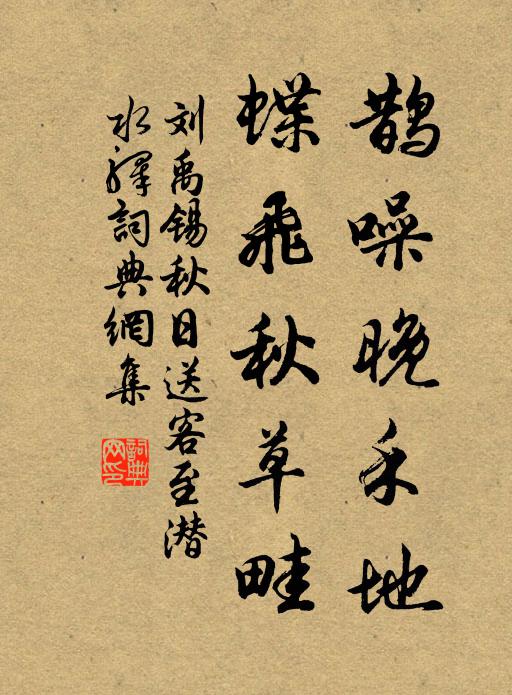 鹊噪晚禾地
蝶飞秋草畦
刘禹锡秋日送客至潜
水驿詞典網集
詞典
网印